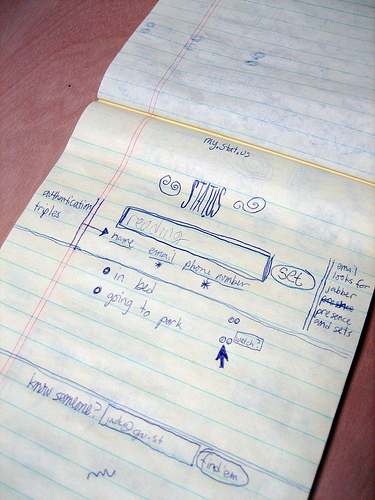 my.stat.us
STATUS
authentication
triples
reading
set
name email phone number
email
looks for
jabber
presence
and sets
in bed
going to park
watch?
know someone?
find 'em